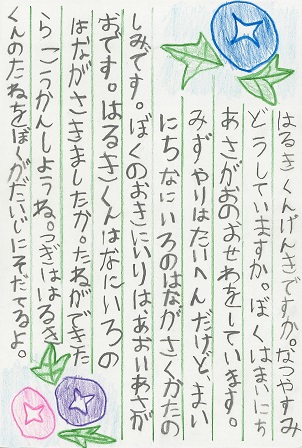 はるきくんげんきですか。なつやすみ
どうしていますか。ぼくはまいにち
あさがおのおせわをしています。
みずやりはたいへんだけどまい
にちなにいろのはながさくかたの
しみです。ぼくのおきにいりは、あおいあさが
おです。はるきくんはなにいろの
はながさきましたか。たねができた
らこうかんしようね。つぎははるき
くんのたねをぼくがだいじにそだてるよ。